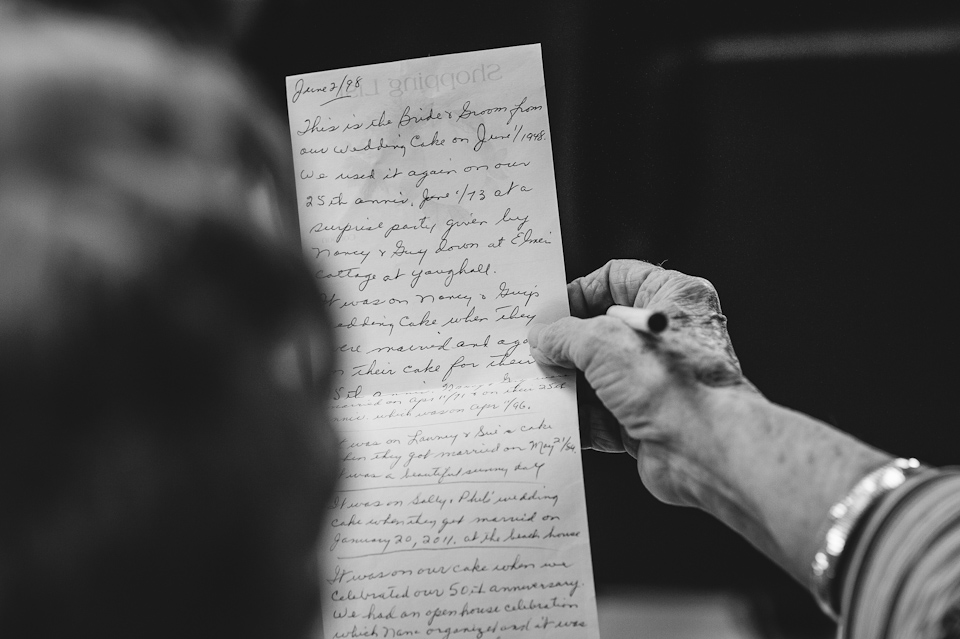 Shopping Lis
June 2/98
This is the Bride & Groom from
our Wedding Cake on June 1/1948.
We used it again on our
25th anniv. June 1/73 at a
surprise party given by
Nancy & Guy down at Elmer
Cottage at Youghall.
It was on Nancy & Guy's
edding Cake when they
ere married and aga
their cake for their
5th
married on Apr 11/71 & on their 25th
anniv. which was on Apr /96.
t was on Lawney & Sue's cake
hen they got married on May 21/
t was a beautiful sunny day
It was on Sally & Phil's wedding
cake when they got married on
January 20, 2011. at the beach house
It was on our cake when we
celebrated our 50th anniversary.
We had an open house celebration
which Nanc organized and it was